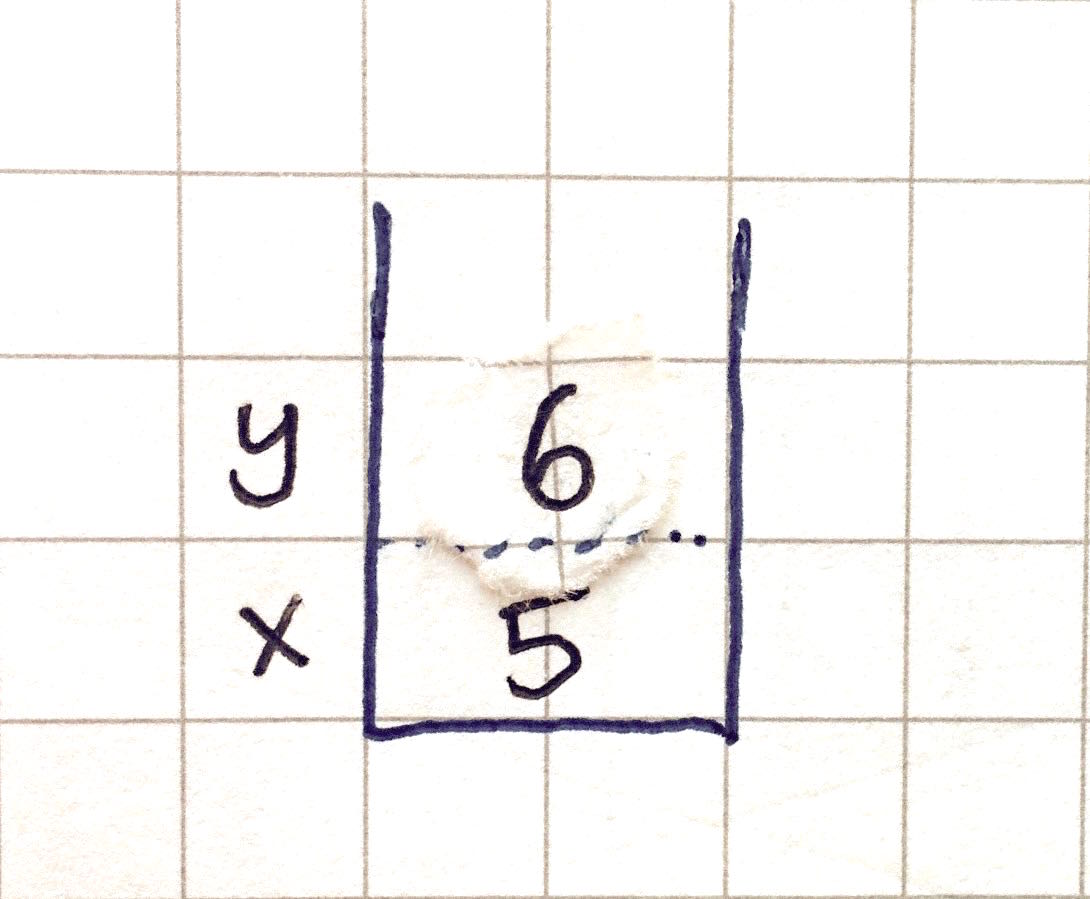 y 6
x 5